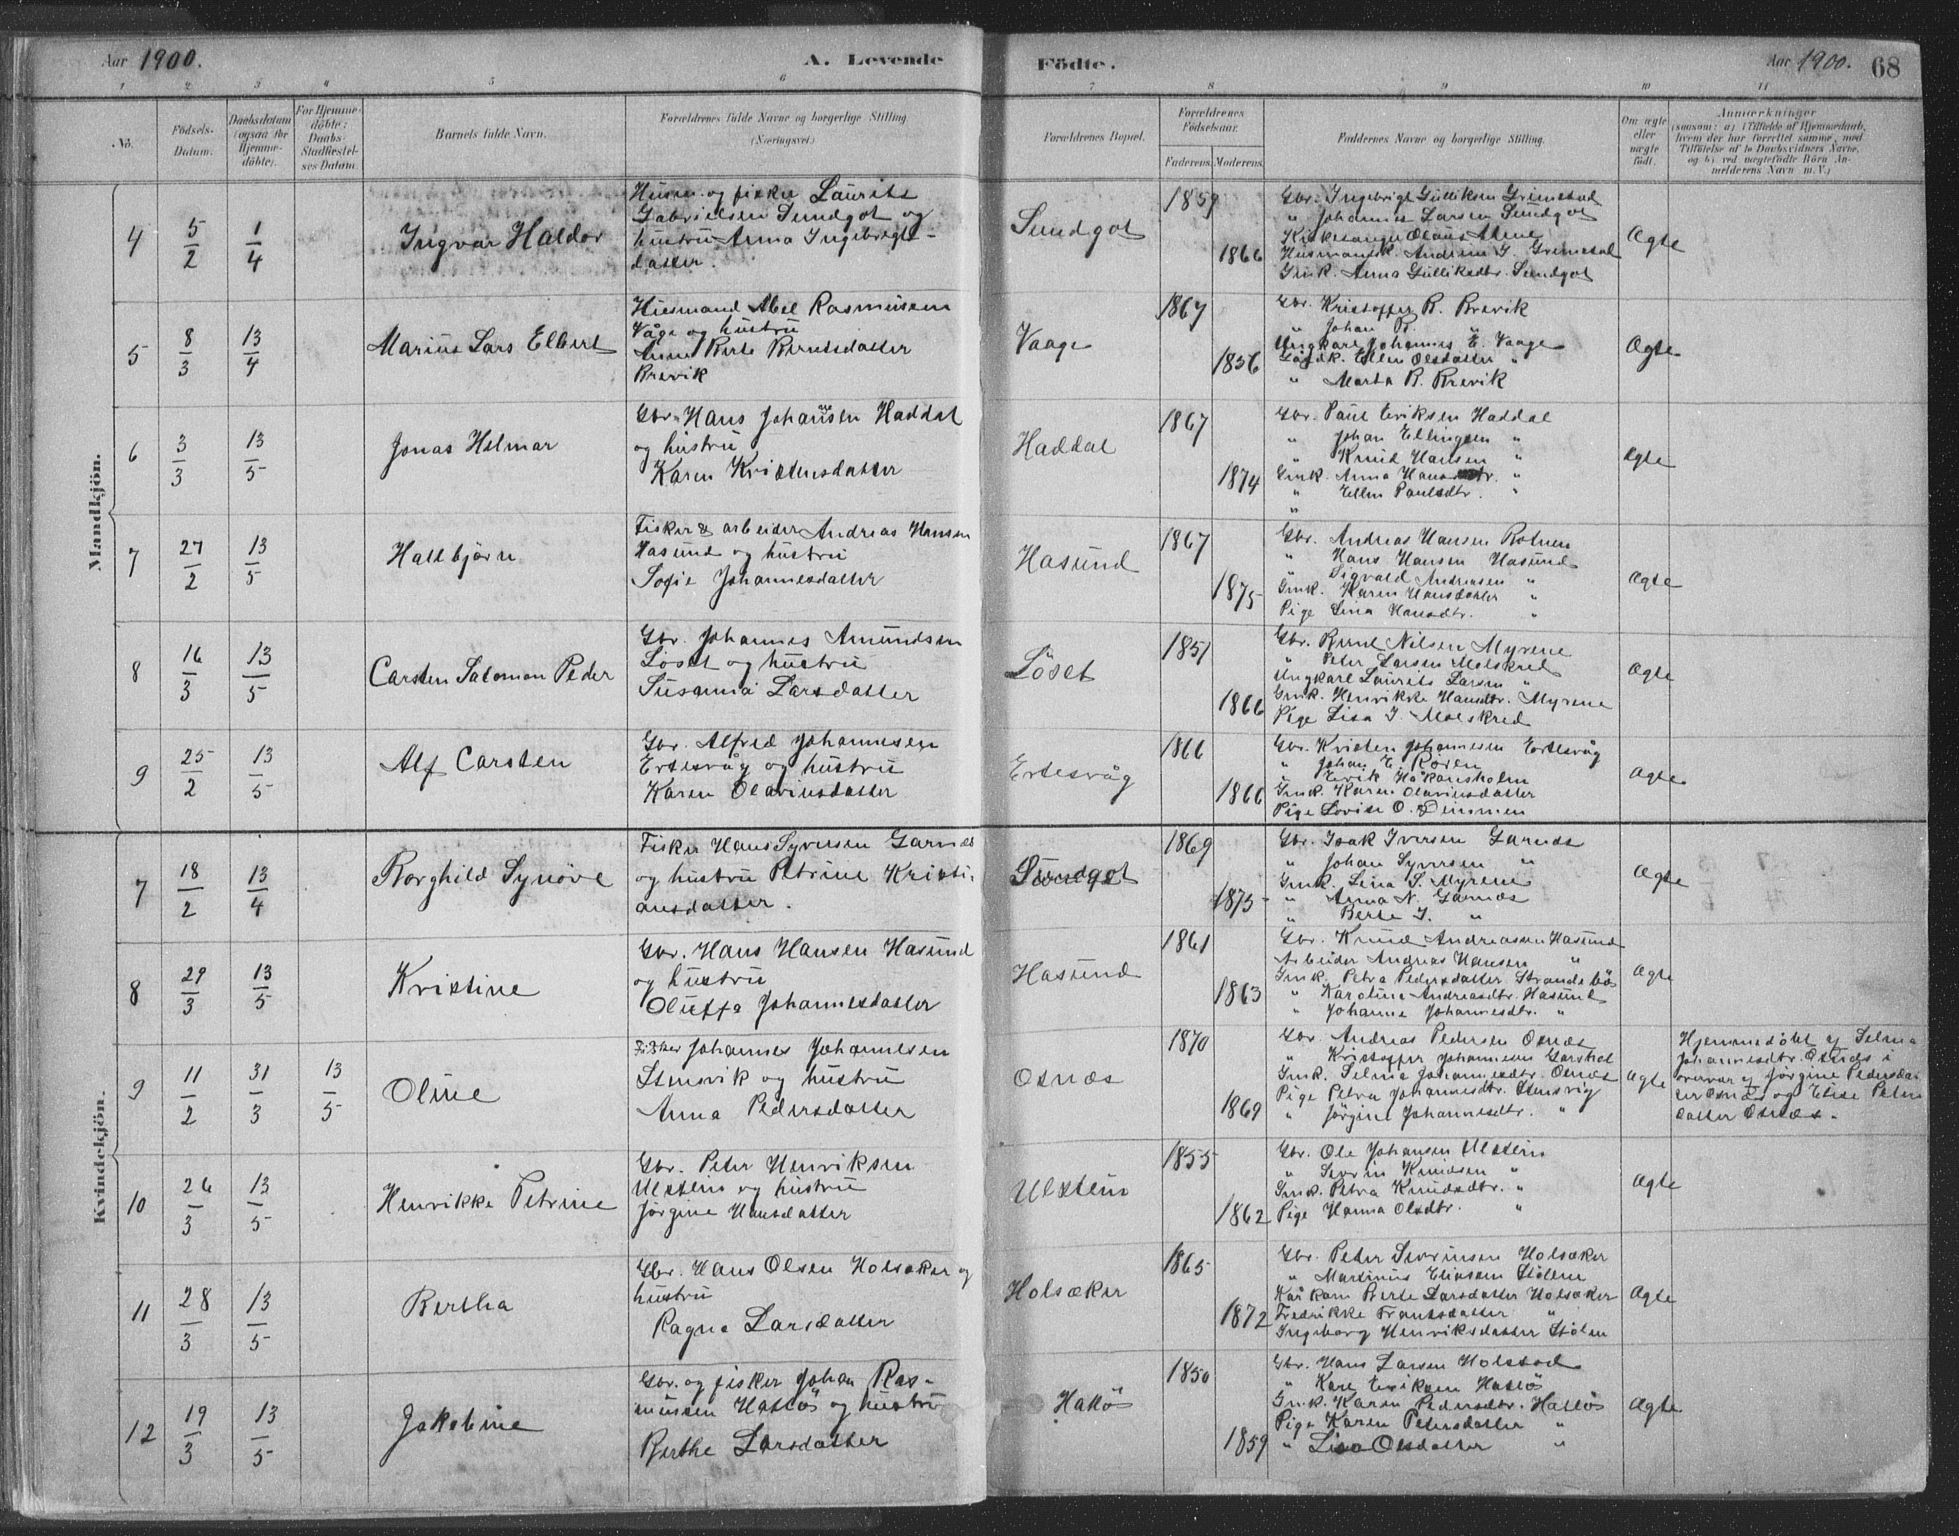 Aar 1900.
A. Levende
Födte.
Aar 1900.
68
1 2 3 4 5 6 7 8 9 10 11
No.
Födsels-
Datum.
Daabsdatum
(ogsaa for
Hjemme-
döbte).
For Hjemme-
döbte:
Daabs-
Stadfæstel-
ses Datum.
Barnets fulde Navn.
Forældrenes fulde Navne og borgerlige Stilling
(Næringsvei)
Forældrenes Bopæl.
Forældrenes
Födselsaar.
Faderens. Moderens.
Faddernes Navne og borgerlige Stilling.
Om ægte
eller
uægte
födt.
Anmærkninger
(saasom: a) i Tilfælde af Hjemmedaab,
hvem der har forrettet samme, med
Tilföielse af to Daabsvidners Navne,
og b) ved uægtefödte Börn An-
melderens Navn m. V.)
Mandkjön.
4
5/2
1/4
Ingvar Haldor
Husm. og fisker Laurits
Gabrielsen Sundgot og
hustru Anna Ingebrigts-
datter.
Sundgot
1859
1866
Gbr. Ingebrigt Gulliksen Grimstad
" Johannes Larsen Sundgot
Kirkesanger Olaus Aune
Husmandsk. Andrine I. Grimstad
Gmk. Anna Gulliksdtr. Sundgot
Ægte
5
8/3
13/4
Marius Lars Elbert
Husmand Abel Rasmussen
Våge og hustru
Anne Berte Berntsdatter
Brevik
Vaage
1867
1856
Gbr. Kristoffer B. Brevik
" Johan B. "
Ungkare Johannes E. Vaage
Gårdk. Ellen Olsdatter "
" Marta B. Brevik
Ægte
6
3/3
13/5
Jonas Hilmar
Gbr. Hans Johansen Haddal
og hustru
Karen Kristensdatter
Haddal
1867
1874
Gbr. Paul Eriksen Haddal
" Johan Ellingsen "
" Knud Hansen "
Gmk. Anna Hansdtr. "
" Ellen Paulsdtr. "
"
Ægte
7
27/2
13/5
Hallbjørn
Fisker & arbeider Andreas Hansen
Hasund og hustru
Sofie Johannesdatter
Hasund
1867
1875
Gbr. Andreas Hansen Rotnen
" Hans Hansen Hasund
" Sigvald Andreasen "
Gmk. Karen Hansdatter "
Pige Lina Hansdtr. "
Ægte
8
16/3
13/5
Carsten Salomon Peder
Gbr. Johannes Amundsen
Löset og hustru
Susanna Larsdatter
Löset
1851
1866
Gbr. Bernt Nilsen Myrene
" Peter Larsen Molskred
Ungkare Laurits Larsen "
Gmk. Henrikke Hansdtr. Myrene
Pige Lisa J. Molskred
Ægte
9
25/2
13/5
Alf Carsten
Gbr. Alfred Johannesen
Ertesvåg og hustru
Karen Olavinsdatter
Ertesvåg
1866
1866
Gbr. Kristen Johannesen Ertesvåg
" Johan E. Roren
" Eerik Håkonsholm
Gmk. Karen Olavinsdatter
Pige Lovise O. Dimmen
Ægte
Kvindekjön.
7
18/2
13/4
Borghild Synöve
Fisker Hans Syversen Garnæs
og hustru Petrine Kristi-
ansdatter.
Sundgot
1869
1873
Gbr. Isak Iversen Garnæs
" Johan Syversen "
Gmk. Lina S. Myrene
" Anna N. Garnæs
" Berte I. "
Ægte
8
29/3
13/5
Kristine
Gbr. Hans Hansen Hasund
og hustru
Oluffa Johannesdatter
Hasund
1861
1863
Gbr. Knud Andreassen Hasund
Arbeider Andreas Hansen "
Gmk. Petra Pedersdatter Strandabö
" Karoline Andreasdtr. Hasund
" Johanne Johannesdtr. "
Ægte
9
11/2
31/3
13/5
Oline
Fisker Johannes Johannesen
Stensvik og hustru
Anna Pedersdatter
Osnæs
1870
1869
Gbr. Andreas Pedersen Osnæs
" Kristoffer Johannesen Garshol
Gmk. Selma Johannesdtr. Osnæs
Pige Petra Johannesdtr. Stensvig
" Jörgine Johannesdtr. "
Ægte
Hjemmedöbt af Selma
Johannesdtr. Osnæs i
overvær af Jörgine Pedersdat
ter Osnæs og Elise Peters
datter Osnæs.
10
26/3
13/5
Henrikke Petrine
Gbr. Peter Henriksen
Ulstein og hustru
Jörgine Hansdatter
Ulstein
1855
1862
Gbr. Ole Johansen Ulstein
" Severin Knudsen "
Gmk. Petra Knudsdtr. "
Pige Hanna Olsdtr. "
Ægte
11
28/3
13/5
Bertha
Gbr. Hans Olsen Holsæker og
hustru
Ragna Larsdatter
Holsæker
1865
1872
Gbr. Peter Severinsen Holsæker
" Martinus Eliasen Stölen
Kårkom Berte Larsdatter Holsæker
Fredrikke Frantsdatter "
Ingeborg Henriksdatter Stölen
Ægte
12
19/3
13/5
Jakobine
Gbr. og fisker Johan Ras-
mussen Hatlö og hustru
Berthe Larsdatter
Hatlö
1850
1859
Gbr. Hans Larsen Holstad
" Karl Eriksen Hatlö
Gmk. Karen Pedersdtr. Hatlö
Pige Karen Petersdatter "
" Lisa Olsdatter "
Ægte